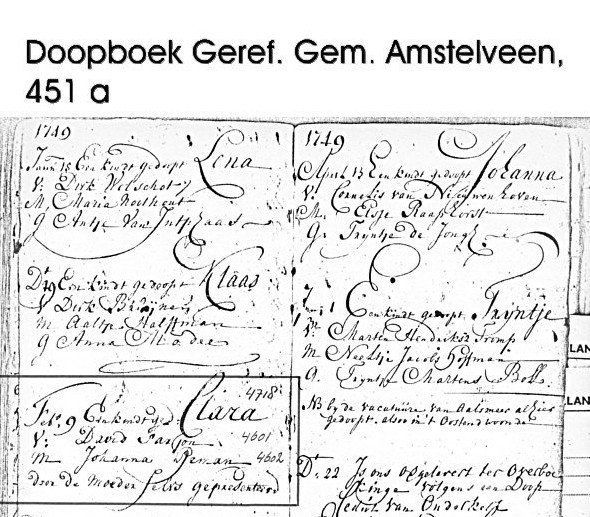 Doopboek Geref. Gem. Amstelveen,
451 a
1749
Jann 18 Een kindt gedoopt Lena
V: Dirk Welschot
M. Maria Hoothout
g Antje Van
Dº 19 Een kindt gedoopt Klaas
V Dirk Bruijnes
m Aaltje Halffman
g Anna
4718
Feb. 9 Een kindt ged. Clara
V: David 4601
m Johanna 4602
door de Moeder selvs gepresenteerd
1749
April 13 Een kindt gedoopt Johanna
V: Cornelis van Nieuwenhoven
M. Elsje Raaphorst
G. Tryntje de Jong
1 Een kindt gedoopt Tryntje
V. Marten Hendriksz Tromp
M Neeltje Jacobs Hoffman
G. Tryntje Martens Bok
NB by de vacature van Aalsmeer alhier
gedoopt, alsoo in't Oosteind woonde
Dº 22 Is ons opgelevert ter Overboe
kinge volgens een Doop
van
LAN
LAN